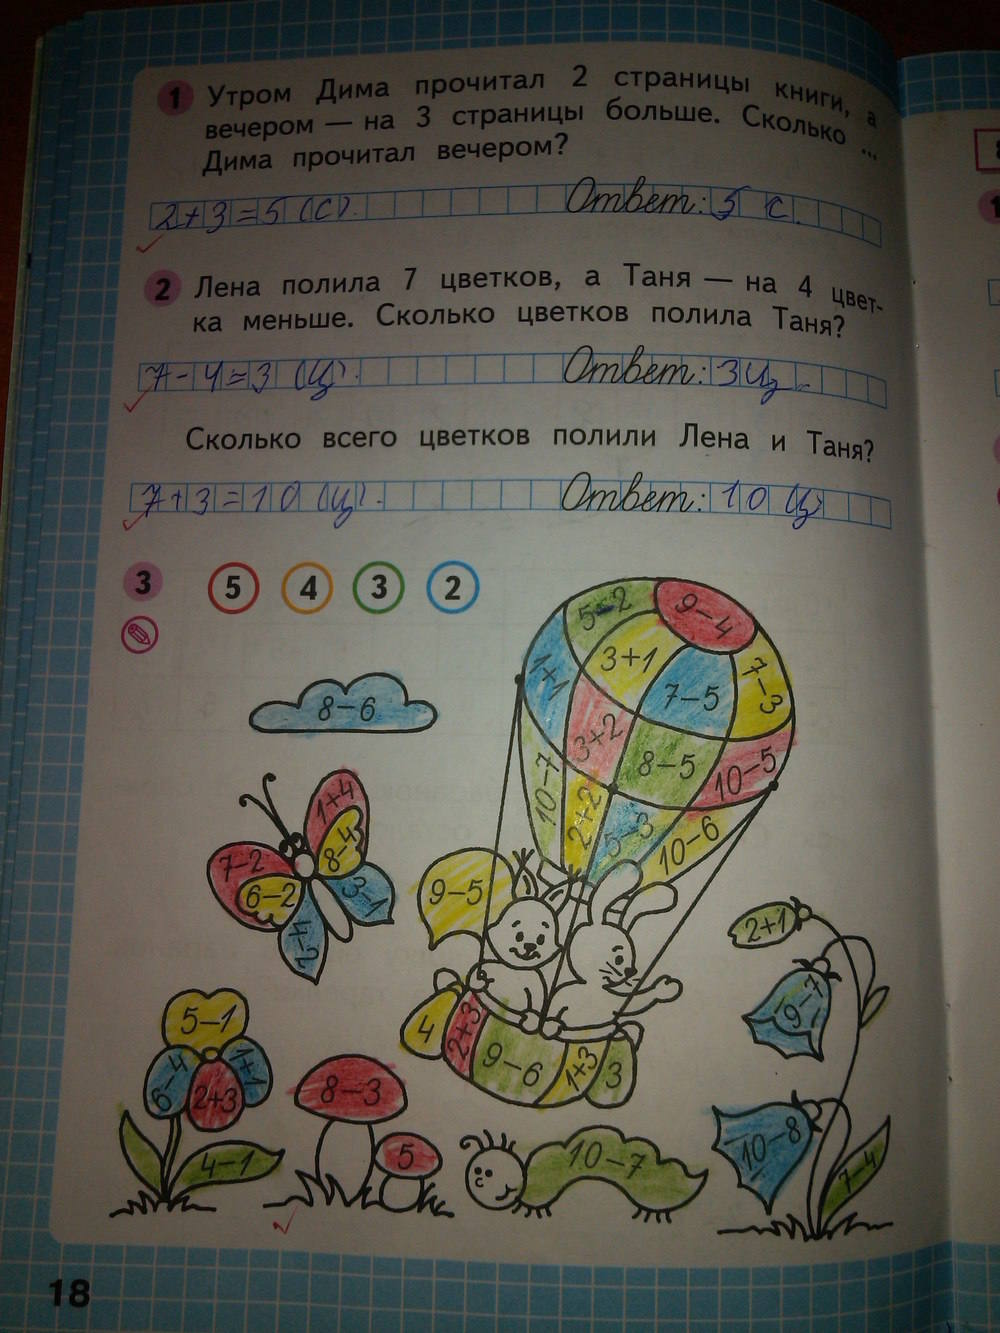 1 Утром Дима прочитал 2 страницы книги, а
вечером — на 3 страницы больше. Сколько ...
Дима прочитал вечером?
2+3=5 (с). Ответ: 5 с.
2 Лена полила 7 цветков, а Таня — на 4 цвет-
ка меньше. Сколько цветков полила Таня?
7-4=3 (ц). Ответ: 3 ц.
Сколько всего цветков полили Лена и Таня?
7+3=10 (ц). Ответ: 10 ц
3 5 4 3 2
5–2 9–4
1+1 3+1 7–5 7–3
8–6
3+2 8–5 10–5
10–7 2+2 5–3 10–6
1+4
7–2 8–4
6–2 3–1
9–5
2+1
9–7
5–1
4 2+3 9–6 1+3 3
6–4 2+3 1+1
8–3
5
4–1
10–7
10–8
7–4
18